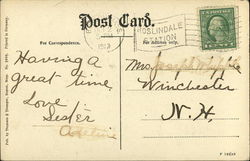 Post Card.
For Correspondence.
For Address only.
ROSLINDALE
STATION
Having a
great time
Love
Sister
Adeline
Mrs Joseph
Winchester
N.H.